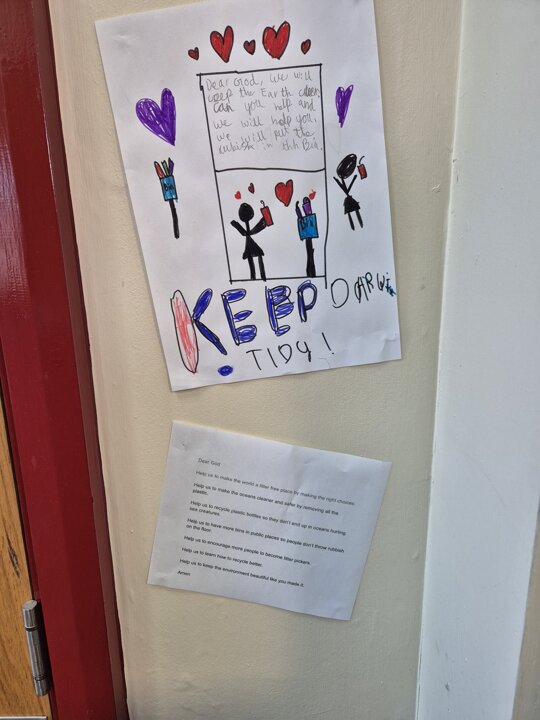 Dear God, we will
keep the Earth cleen
can you help and
we will help you.
we will put the
rubish in thh Bin.
Bin
Bin
KEEP
TIDY!
Dear God
Help us to make the world a litter free place by making the right choices.
Help us to make the oceans cleaner and safer by removing all the
plastic.
Help us to recycle plastic bottles so they don't end up in oceans hurting
sea creatures.
Help us to have more bins in public places so people don't throw rubbish
on the floor.
Help us to encourage more people to become litter pickers.
Help us to learn how to recycle better.
Help us to keep the environment beautiful like you made it.
Amen